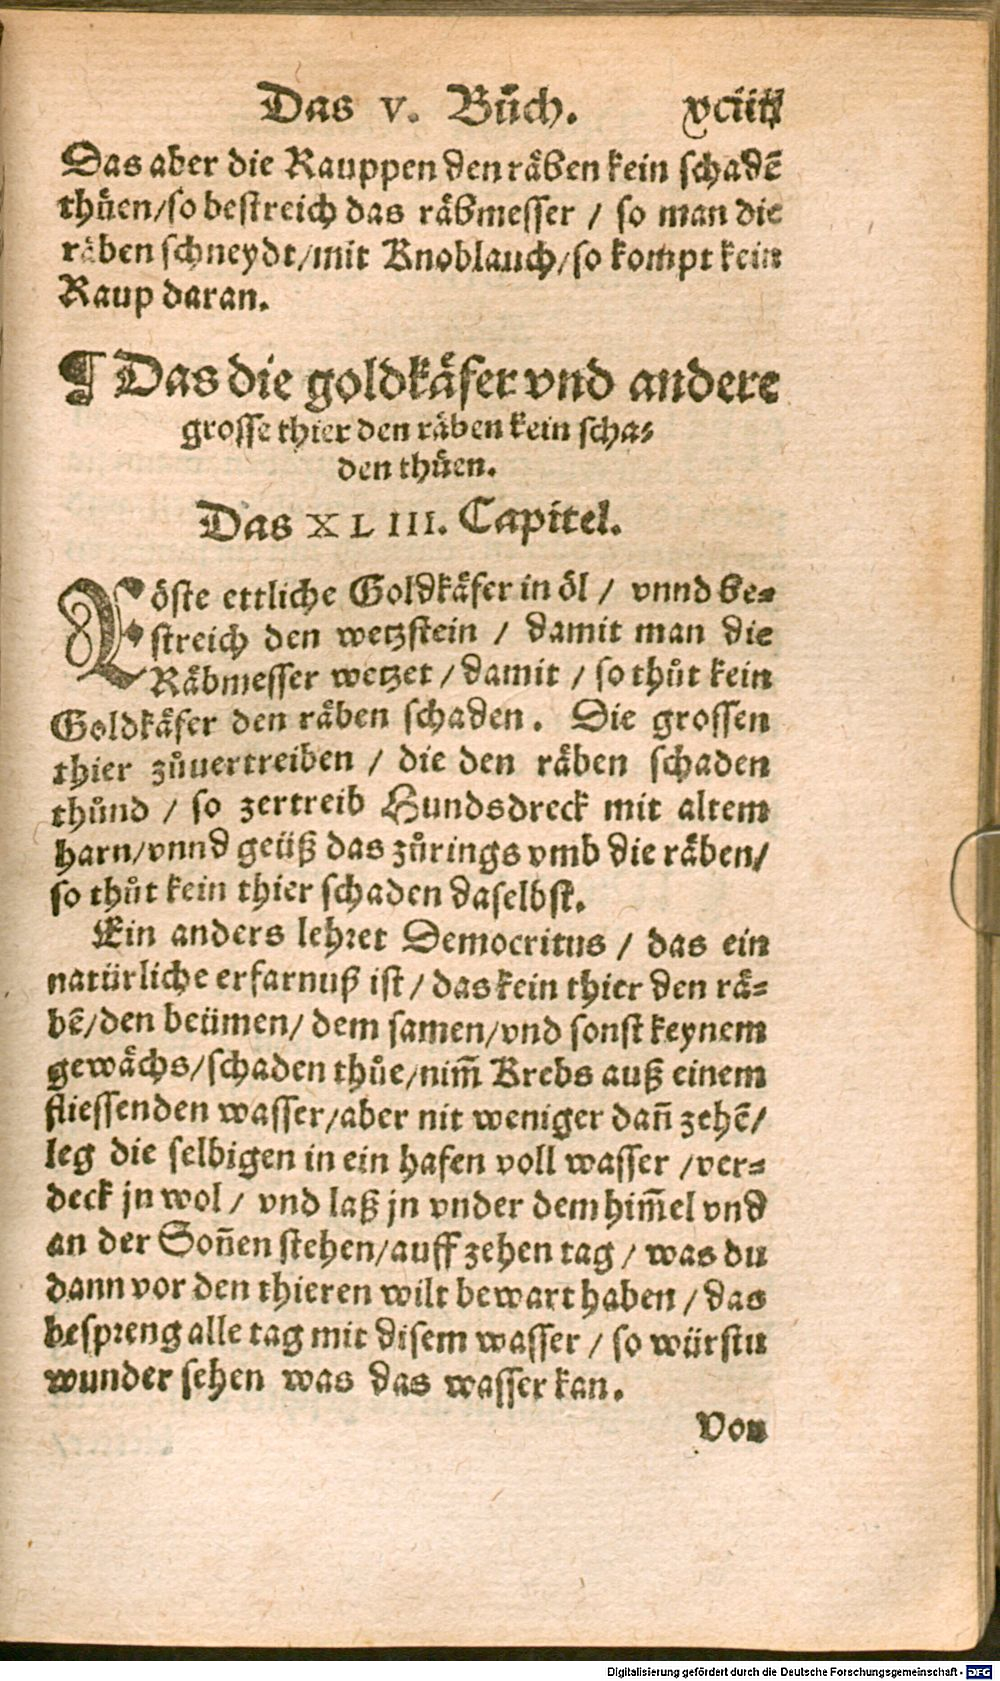 Das v. Bůch. xciiij
Das aber die Rauppen den räben kein schadẽ
thůen/so bestreich das räbmesser / so man die
räben schneydt/mit Knoblauch/so kompt kein
Raup daran.
¶ Das die goldkäfer vnd andere
grosse thier den räben kein scha-
den thůen.
Das XLIII. Capitel.
Röste ettliche Goldkäfer in öl / vnnd be-
streich den wetzstein / damit man die
Räbmesser wetzet / damit / so thůt kein
Goldkäfer den räben schaden. Die grossen
thier zůuertreiben / die den räben schaden
thůnd / so zertreib Hundsdreck mit altem
harn/vnnd geüß das zůrings vmb die räben/
so thůt kein thier schaden daselbst.
Ein anders lehret Democritus / das ein
natürliche erfarnuß ist / das kein thier den rä-
bẽ/den beümen/ dem samen/vnd sonst keynem
gewächs/schaden thůe/nim̃ Krebs auß einem
fliessenden wasser/aber nit weniger dañ zehẽ/
leg die selbigen in ein hafen voll wasser /ver-
deck jn wol / vnd laß jn vnder dem him̃el vnd
an der Soñen stehen/auff zehen tag / was du
dann vor den thieren wilt bewart haben / das
bespreng alle tag mit disem wasser / so würstu
wunder sehen was das wasser kan.
Von
Digitalisierung gefördert durch die Deutsche Forschungsgemeinschaft - DFG